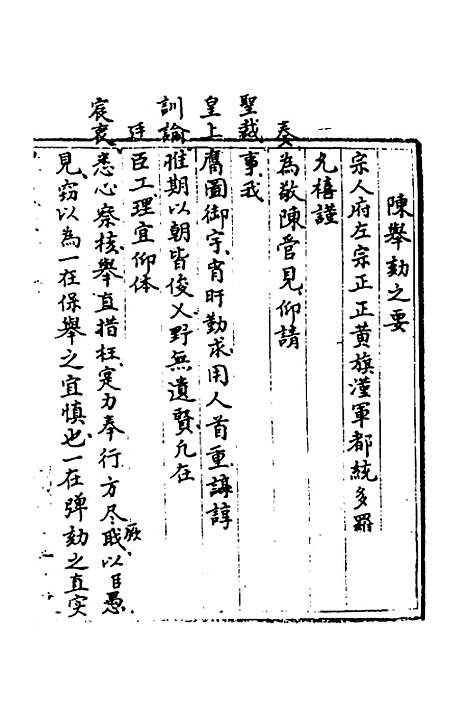 陳舉劾之要
宗人府左宗正正黃旗漢軍都統多羅
允禧謹
奏為敬陳管見仰請
聖裁事我
皇上膺圖御宇宵旰勤求用人首重諄諄
訓諭惟期以朝皆俊乂野無遺賢凡在
廷臣工理宜仰体
宸衷悉心察核舉直措枉寔力奉行方尽厥職以臣愚
見窃以為一在保舉之宜慎也一在弹劾之直实